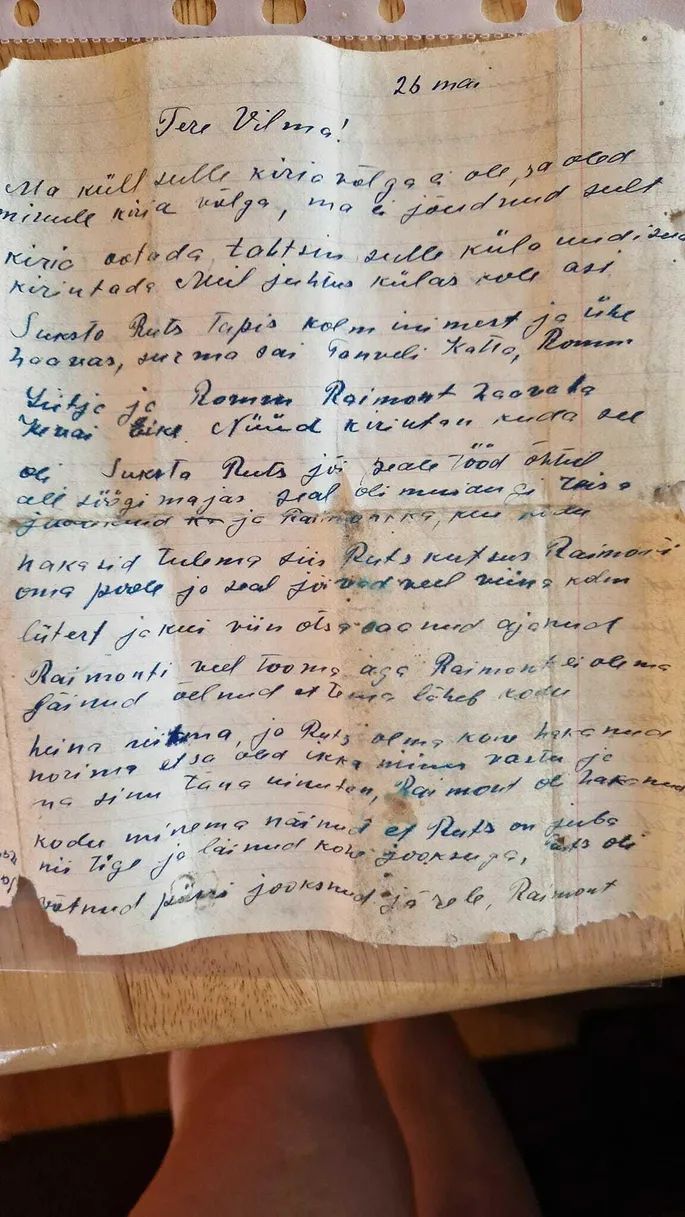 26 mai
Tere Vilma!
Ma küll sulle kirja võlga ei ole, sa oled
minule kirja võlga, ma ei jõudnud sult
kirja ootada tahtsin sulle küla uudiseid
kirjutada Meil juhtus külas kole asi
Suksta Ruts Tapis kolm inimest ja ühe
haavas, surma sai Tanveli Katta, Romm
ja Romm Raimont haavata
sai Eike Nüüd kirjutan kuda see
oli Suksta Ruts jõi peale tööd õhtul
all söögimajas seal oli muidugi teisa
joonud ja Raimont ka, kui kodu
hakasid tulema siis Ruts kutsus Raimonti
oma poole ja seal jõivad veel viina kolm
liitert ja kui viin otsa saanud ajanud
Raimonti veel tooma aga Raimont ei olema
läinud õelnud et tema läheb kodu
heina niitma, ja Ruts olma kohe hakanud
norima et sa oled ikka minu vastu ja
ma sinu täna uinutan, Raimont oli hakanud
kodu minema näinud et Ruts on juba
nii tige ja läinud kohe jooksuga, Ruts oli
võtnud püssi jooksnud järele, Raimont